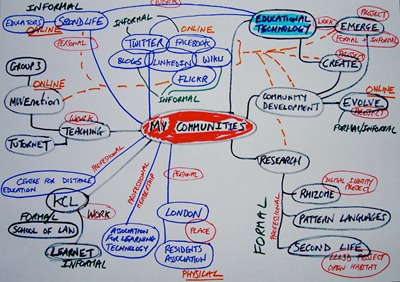 INFORMAL
EDUCATORS
SECONDLIFE
ONLINE
PERSONAL
GROUP 3
ONLINE
MUVEnation
WORK
TEACHING
TUTORNET
INFORMAL
TWITTER
ONLINE
FACEBOOK
BLOGS
LINKEDIN
WIKI
FLICKR
INFORMAL
WORK
EDUCATIONAL
TECHNOLOGY
WORK
PROJECT
EMERGE
FORMAL + INFORMAL
PROJECT
CREATE
COMMUNITY
DEVELOPMENT
ONLINE
EVOLVE
PROJECT
FORMAL/INFORMAL
MY COMMUNITIES
RESEARCH
DIGITAL IDENTITY
PROJECT
RHIZOME
PATTERN LANGUAGES
SECOND LIFE
PROJECT
OPEN HABITAT
FORMAL
PROFESSIONAL
PROFESSIONAL
CENTRE FOR DISTANCE
EDUCATION
KCL
FORMAL
SCHOOL OF LAW
WORK
LEARNET
INFORMAL
PROFESSIONAL
MEMBERSHIP
ASSOCIATION
FOR LEARNING
TECHNOLOGY
PERSONAL
LONDON
PLACE
RESIDENTS
ASSOCIATION
PHYSICAL